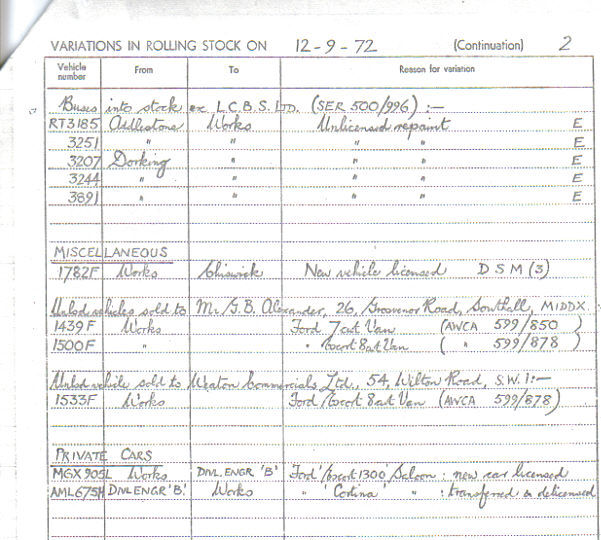 VARIATIONS IN ROLLING STOCK ON 12-9-72 (Continuation) 2
Vehicle number From To Reason for variation
Buses into stock ex L.C.B.S. LTD. (SER 500/996) :—
RT3185 Addlestone Works Unlicensed repaint E
3251 " " " " E
3207 Dorking " " " E
3244 " " " " E
3891 " " " " E
MISCELLANEOUS
1782F Works Chiswick New vehicle licensed DSM (3)
vehicles sold to Mr. G.B. Alexander, 26, Grosvenor Road, Southall, MIDDX.
1439F Works Ford 7cwt Van (AWCA 599/850)
1500F " " Escort 8cwt Van ( " 599/878)
vehicle sold to Weaton Commercials Ltd., 54, Wilton Road, S.W.1:—
1533F Works Ford Escort 8cwt Van (AWCA 599/878)
PRIVATE CARS
MGX 905L Works DIVL. ENGR 'B' Ford 'Escort 1300' Saloon : new car licensed
AML675H DIVL ENGR 'B'. Works " 'Cortina' " : transferred & delicensed